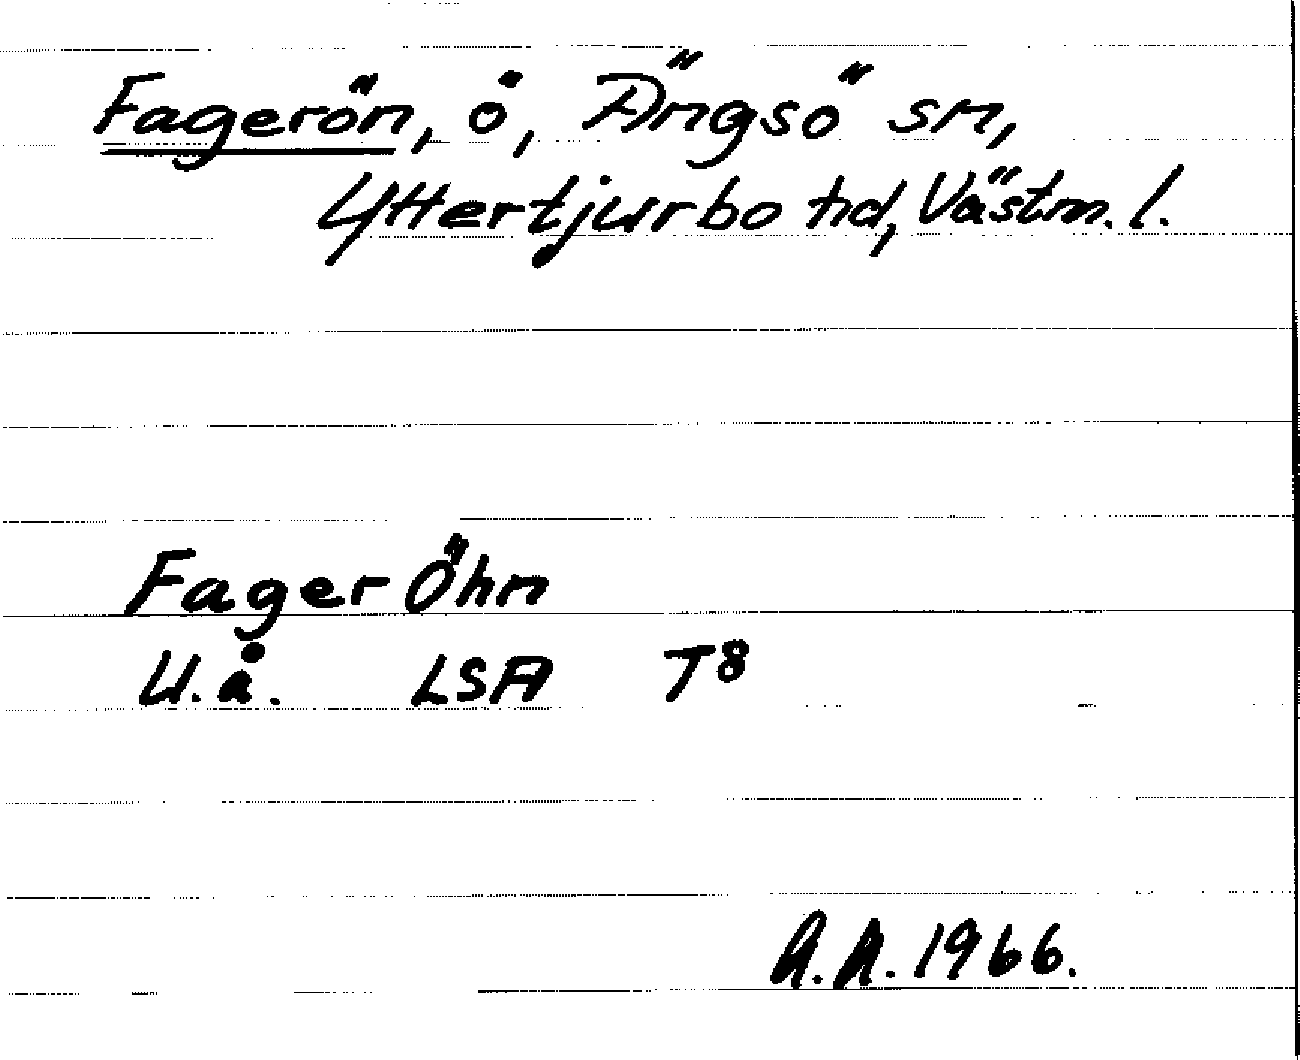 Fagerön, ö, Ängsö sn,
Yttertjurbo hd, Västm. l.
Fager Öhn
U.å. LSA T8
A.A. 1966.